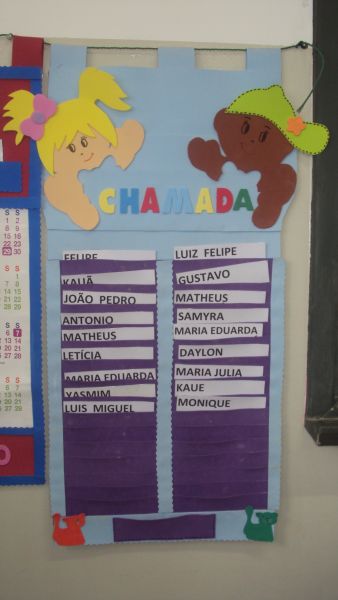 CHAMADA
FELIPE
KAUÃ
JOÃO PEDRO
ANTONIO
MATHEUS
LETÍCIA
MARIA EDUARDA
YASMIM
LUIS MIGUEL
LUIZ FELIPE
GUSTAVO
MATHEUS
SAMYRA
MARIA EDUARDA
DAYLON
MARIA JULIA
KAUE
MONIQUE